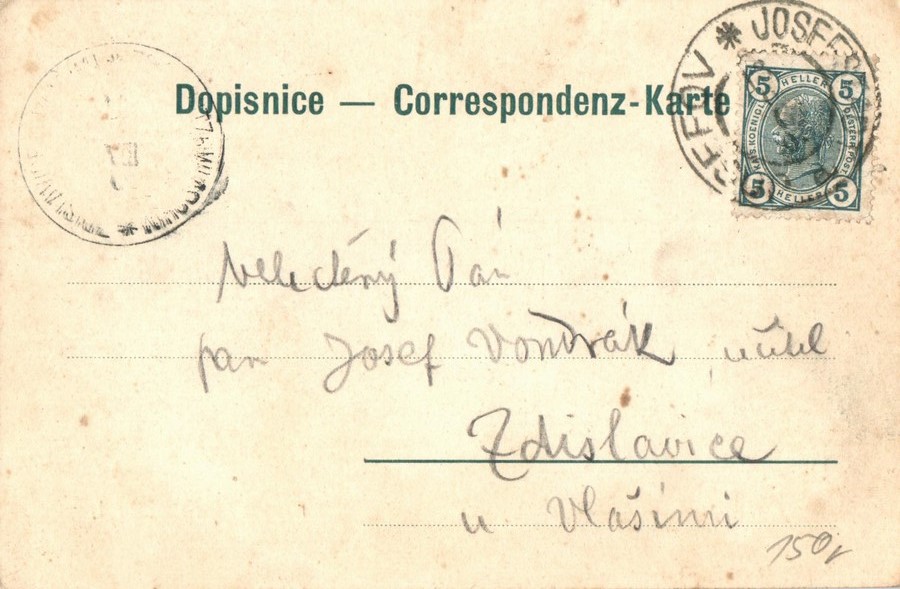 Dopisnice — Correspondenz-Karte
JOSEFOV * JOSEF
5 HELLER 5
KAIS. KOENIGL. OESTERR. POST.
5 HELLER 5
Velectěný Pán
pan Josef Vondrák, učitel
Zdislavice
u Vlašimi
150,